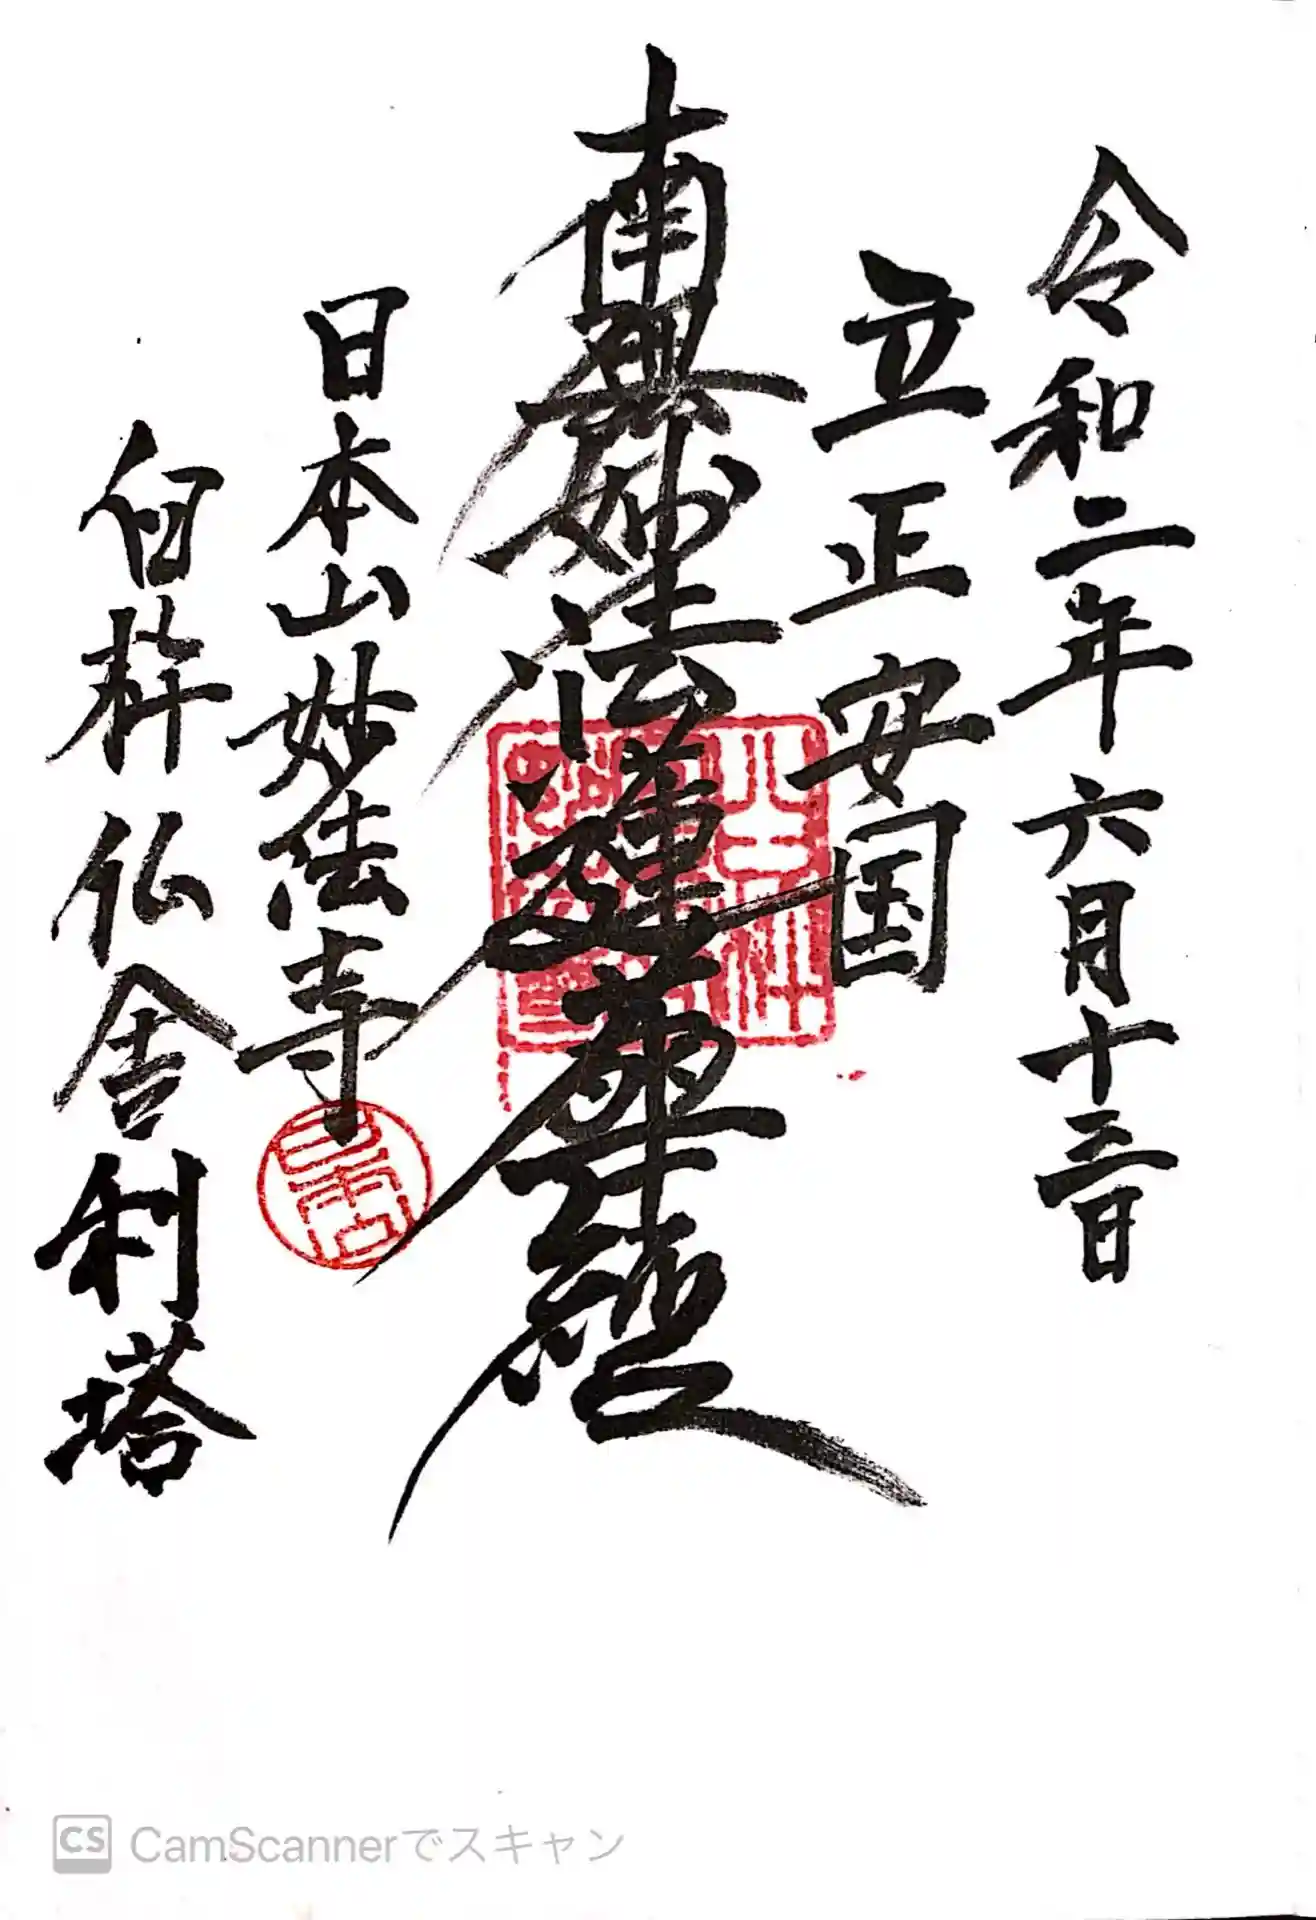 令和二年六月十三日
立正安国
南無妙法蓮華經
日本山妙法寺
臼杵仏舎利塔
CS CamScannerでスキャン